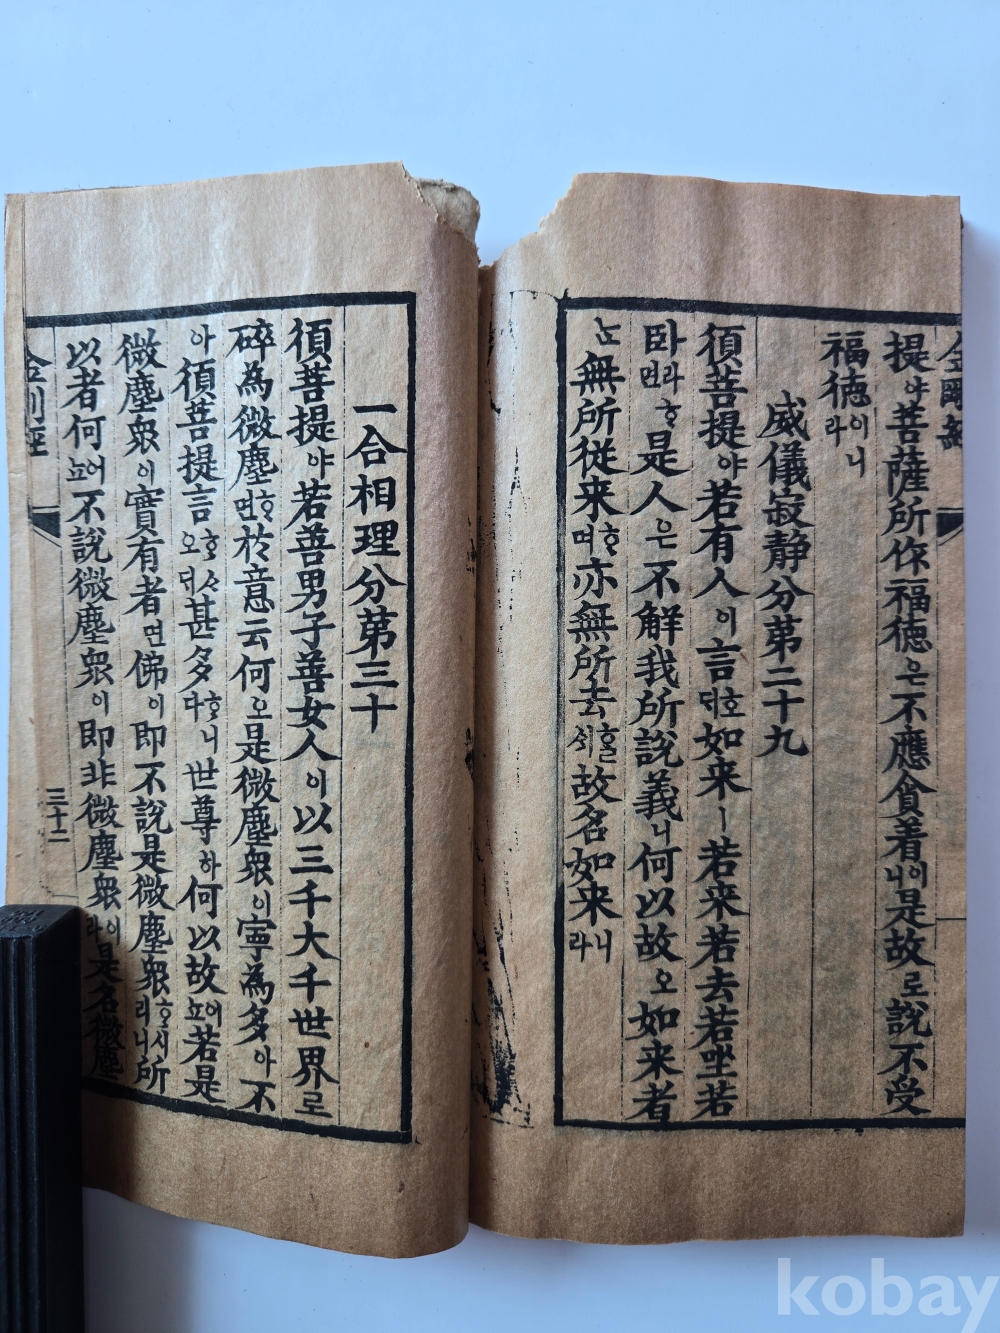 提야菩薩所作福德은不應貪着이니是故로說不受
福德이니라
威儀寂静分第二十九
須菩提야若有人이言호ᄃᆡ如来ㅣ若来若去若坐若
卧ㅣ라ᄒᆞ면是人은不解我所說義니何以故오如来者
ᄂᆞᆫ無所從来ᄒᆞ며亦無所去ᄒᆞᆯᄉᆡ故名如来니라
一合相理分苐三十
須菩提야若善男子善女人이以三千大千世界로
碎為微塵ᄒᆞ면於意云何오是微塵衆이寧為多아不
아須菩提言ᄒᆞ샤ᄃᆡ甚多ᄒᆞ니다世尊하何以故어뇨若是
微塵衆이實有者면佛이即不說是微塵衆ᄒᆞ시리니所
以者何어뇨不說微塵衆이即非微塵衆이라是名微塵
三十二
kobay